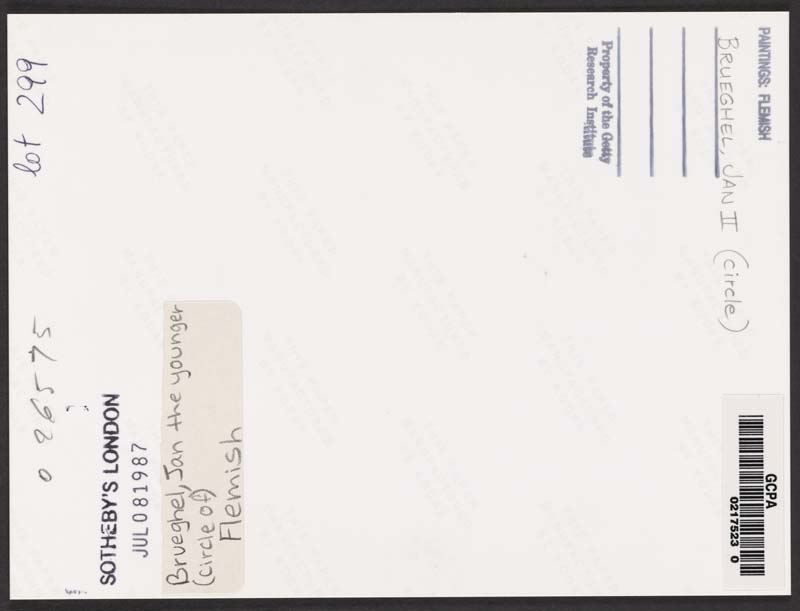 PAINTINGS: FLEMISH
BRUEGHEL, JAN II (circle)
Property of the Getty
Research Institute
GCPA
0217523 0
lot 299
0 26575
SOTHEBY'S LONDON
JUL 081987
Brueghel, Jan the younger
(circle of)
Flemish